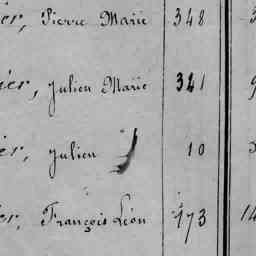 er, Pierre Marie 348 3
ier, Julien Marie 341 9
er, Julien 10
er, François Léon 173 14